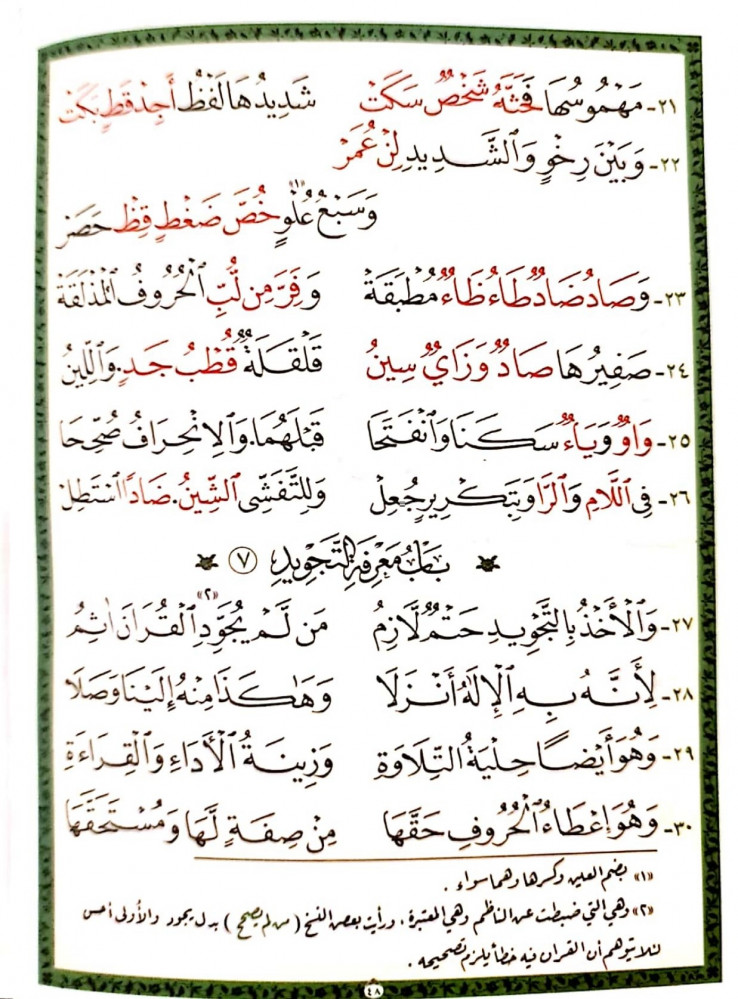 ٢١- مَهْمُوسُهَا فَحَثَّهُ شَخْصٌ سَكَتْ شَدِيدُهَا لَفْظُ أَجِدْ قَطٍ بَكَتْ
٢٢- وَبَيْنَ رِخْوٍ وَٱلشَّدِيدِ لِنْ عُمَرْ
وَسَبْعُ عُلْوٍ«١» خُصَّ ضَغْطٍ قِظْ حَصَرْ
٢٣- وَصَادُ ضَادٌ طَاءُ ظَاءٌ مُطْبَقَةْ وَفِرَّ مِن لُّبِّ ٱلْحُرُوفُ ٱلْمُذْلَقَةْ
٢٤- صَفِيرُهَا صَادٌ وَزَايٌ سِينُ قَلْقَلَةٌ قُطْبُ جَدٍ. وَٱللِّينُ
٢٥- وَاوٌ وَيَاءٌ سَكَنَا وَٱنْفَتَحَا قَبْلَهُمَا. وَٱلِانْحِرَافُ صُحِّحَا
٢٦- فِي ٱللَّامِ وَٱلرَّا وَبِتَكْرِيرٍ جُعِلْ وَلِلتَّفَشِّي ٱلشِّينُ. ضَادًا ٱسْتَطِلْ
بَابُ مَعْرِفَةِ التَّجْوِيدِ ٧
٢٧- وَٱلْأَخْذُ بِٱلتَّجْوِيدِ حَتْمٌ لَّازِمُ مَن لَّمْ يُجَوِّدِ«٢» ٱلْقُرَانَ اٰثِمُ
٢٨- لِأَنَّهُ بِهِ ٱلْإِلَٰهُ أَنْزَلَا وَهَٰكَذَا مِنْهُ إِلَيْنَا وَصَلَا
٢٩- وَهُوَ أَيْضًا حِلْيَةُ التِّلَاوَةِ وَزِينَةُ ٱلْأَدَاءِ وَٱلْقِرَاءَةِ
٣٠- وَهُوَ إِعْطَاءُ ٱلْحُرُوفِ حَقَّهَا مِنْ صِفَةٍ لَّهَا وَمُسْتَحَقَّهَا
«١» بضم العين وكسرها وهما سواء .
«٢» وهي التي ضبطت عن الناظم وهي المعتبرة ، ورأيت بعض النسخ ( من لم يصحح ) بدل يجود والأولى أحسن
لئلا يتوهم أن القرآن فيه خطأ يلزم تصحيحه .
٤٨